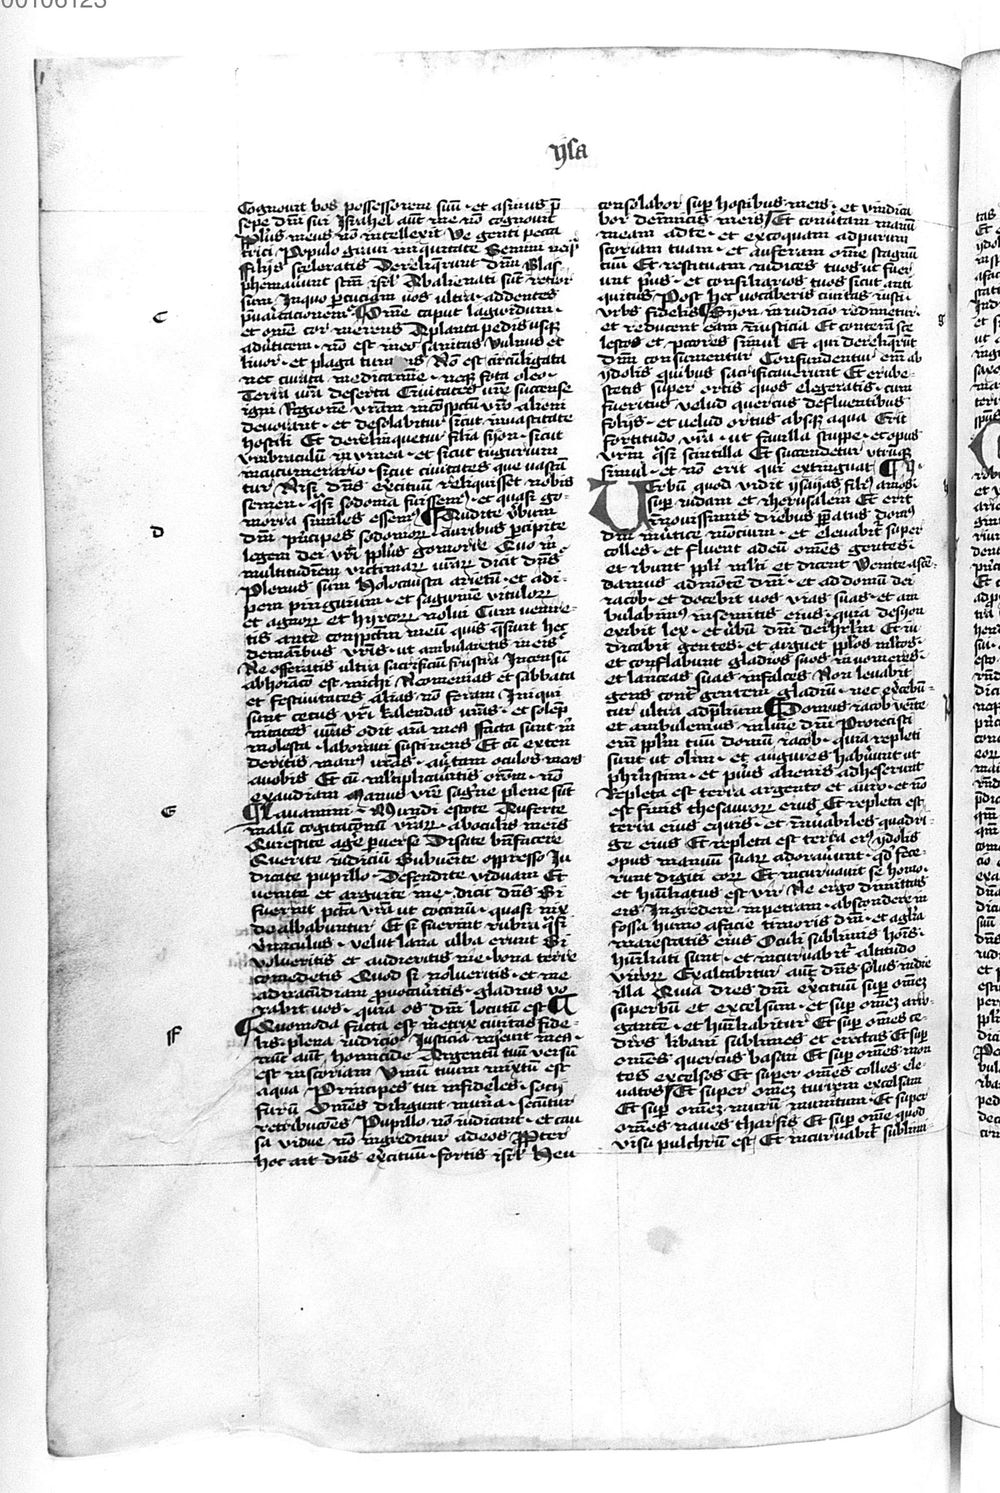 00106123
ysa
Cognouit bos possessorem suū · et asinus p̄
sepe dn̄i sui Israhel aūt me nō cognouit
Pp̄lus meus nō intellexit Ve genti pecca
trici Populo graui iniquitate Semini neq̄
ffilijs sceleratis Dereliq̄runt dn̄m Blas
phemauerunt sc̄m isrl̄ Abalienati sūt retror
sum Inquo p̄cuciam uos ultra · addentes
p̄uaricationem Om̄e caput laguidum ·
C
et om̄e cor merens Aplanta pedis usq̄
aduticem · nō est in eo sanitas Vulnus et
liuor · et plaga tumēs Nō est circūligata
nec curata medicamine · neq̄ fota oleo ·
Terra vr̄a deserta Ciuitates vr̄e succense
igni Regionē vr̄am incōspectu vr̄o alieni
deuorant · et desolabitur sicut inuastitate
hostili Et derelinquetur filia syon · sicut
vmbraculū in vinea · et sicut tugurium
incucumerario · sicut ciuitates que uastan̄
tur Nisi dn̄s exercituū reliquisset nobis
semen · q̄si sodoma fuissem⁹ · et quasi go-
morra similes essem⁹ Audite v̄bum
D
dn̄i p̄ncipes sodomoꝝ · auribus p̄cipite
legem dei vr̄i pplūs gomorre Quo m̄
multitudinem victimaꝝ vr̄aꝝ dicit dn̄s
Plenus sum Holocausta arietū · et adi-
pem pinguium · et sagwinē vitulorꝝ
et agnorꝝ et hyrcorꝝ nolui Cum venire-
tis ante conspectū meū quis q̄siuit hec
demanibus vr̄is · ut ambularetis in eis
Ne offeratis ultra sacrificiū frustra Incensū
abhoīaco est michi Neomenias et sabbata
et festiuitates alias · nō feram Iniqui
sunt cetus vr̄i kalendas vr̄as · et solēp
nitates vr̄as odit aīa mea ffacta sunt m̄
molesta · laboraui sustinens Et cū exten
deritis manꝰ vr̄as · au̓tam oculos meos
auobis Et cū ml̓tiplicaueritis orōm · nō
exaudiam Manus vr̄e sagwīe plene sūt
Lauamini · Mundi estote Auferte
G
malū cogitacōnū vr̄aꝝ · aboculis meis
Quiescite age p̄uerse Discite bn̄facere
Querite iudiciū Subuenite oppresso Iu
dicate pupillo · Defendite viduam Et
venite et arguite me · dicit dn̄s Si
fuerint pc̄ta vr̄a ut cocinū · quasi nix
dealbabuntur Et si fuerint rubra q̄si
vmiculus · velut lana alba erunt Si
volueritis et audieritis me · bona terre
comedetis Quod si nolueritis · et me
adiracūdiam p̄uocau̓itis · gladius vo
rabit uos · quia os dn̄i locutū est
Quomodo facta est m̄etrix ciuitas fide-
ff
lis · plena iudicio Iusticia habitauit inea ·
nūc aūt homicide Argentū tuū versū
est in scoriam Vinū tuum mixtū est
aqua Principes tui infideles · socij
furū Omēs diligunt mun̓a · secūtur
retribucōes Pupillo nō iudicant · et cau
sa vidue nō ingreditur adeos Ppter
hoc ait dn̄s exercituū · fortis isrl̄ Heu
consolabor sup̄ hostibus meis · et vindica
bor deinimicis meis Et conūtam manū
meam adte · et excoquam adpurum
scoriam tuam · et auferam om̄e stagnū
tuū Et restituam iudices tuos ut fuer
unt p̄us · et consiliarios tuos sicut anti
quitus Post hec vocaberis ciuitas iusti
vrbs fidelis Syon in iudicio redimetur ·
g
et reducent eam in iusticia Et conteret sce
lestos et pctōres simul Et qui dereliq̄rūt
dn̄m consumentur Confundentur em̄ ab
ydolis quibus sacrificauerunt Et erube-
scetis super ortis quos elegeratis · cum
fueritis velud quercus defluentibus
folijs · et velud ortus absq̄ aqua Erit
fortitudo vr̄a · ut fauilla stuppe · et opus
vr̄m q̄si scintilla Et succendetur vtrūq̄
simul · et nō erit qui extinguat
Uerbū quod vidit ysayas filiꝰ amos ·
sup̄ iudam et iherusalem Et erit
innouissimis diebus pp̄atus domꝰ
dn̄i in v̄tice mōcium · et eleuabit̄ super
colles · et fluent adeū omēs gentes ·
et ibunt ppl̄i ml̓ti et dicent Venite asce-
damus admōtē dn̄i · et ad domū dei
iacob · et docebit uos vias suas · et am
bulabimꝰ in semitis eius · quia desyon
exibit lex · et v̄bū dn̄i deihrl̄m Et iu
dicabit gentes · et arguet pplōs ml̓tos ·
et conflabunt gladios suos in uomeres ·
et lanceas suas infalces Non leuabit
gens cont̄ gentem gladiū · nec exercebū-
tur ultra adp̄lium Domus iacob venite
et ambulemus · in lumīe dn̄i Proiecisti
em̄ ppl̄m tuū domū iacob · quia repleti
sunt ut olim · et augures habuer̄t ut
philistim · et pueris alienis adheserunt
Repleta est terra argento et auro · et nō
est finis thesauroꝝ eius Et repleta est
terra eius equis · et in̄uabiles quadri-
ge eius Et repleta est terra eiꝰ ydolis
opus manuū suaꝝ adorau̓unt · qd̓ fece-
runt digiti eoꝝ Et incuruauit se homo ·
et hūiliatus est vir Ne ergo dimittas
eis Ingredere inpetram · abscondere in
fossa humo afacie timoris dn̄i · et aglīa
maiestatis eius Oculi sublimis hoīs ·
hūiliati sunt · et incuruabit̄ altitudo
viroꝝ Exaltabitur aūt dn̄s solus indie
illa Quia dies dn̄i exercituū sup̄ omēz
superbū et excelsum · et sup̄ omēz arro-
gantē · et hūiliabitur Et sup̄ omēs ce-
dros libani sublimes et erectas Et sup̄
omēs quercus basan Et sup̄ omēs mon
tes excelsos Et super omēs colles ele-
uatos Et super omēz turrim excelsam
Et sup̄ omēz murū munitum Et super
omēs naues tharsis Et sup̄ om̄e quod
visu pulchrū est Et incuruabit̄ sublim-